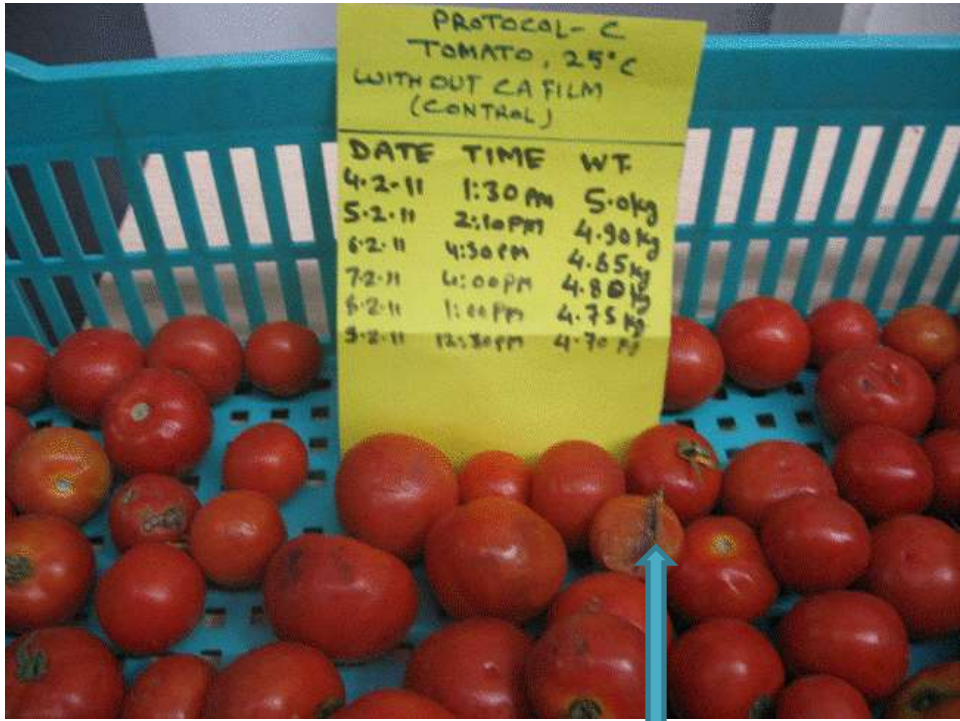 PROTOCOL- C
TOMATO, 25°C
WITHOUT CA FILM
(CONTROL)
DATE TIME WT.
4.2.11 1:30 PM 5.0kg
5.2.11 2:10PM 4.90kg
6.2.11 4:30PM 4.85kg
7.2.11 4:00PM 4.80kg
8.2.11 1:00PM 4.75kg
9.2.11 12:30PM 4.70kg